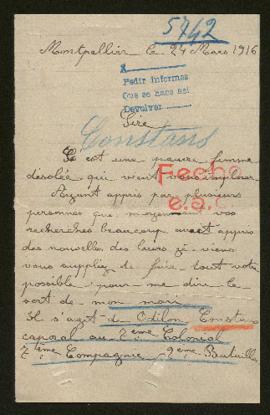 5742
Montpellier le 24 Mars 1916
Pedir informes
Que se haga así
Devolver
Sire
Constans
C'est une pauvre femme
désolée qui vient vous
Fecho
Ayant appris par plusieurs
personnes que moyennant vos
recherches beaucoup avait appris
des nouvelles des leurs je viens
vous supplier de faire tout votre
possible pour me dire le
sort de mon mari
Il s'agit de Odilon Constans
caporal au 2ème Colonial
7ème Compagnie 2ème Bataillon